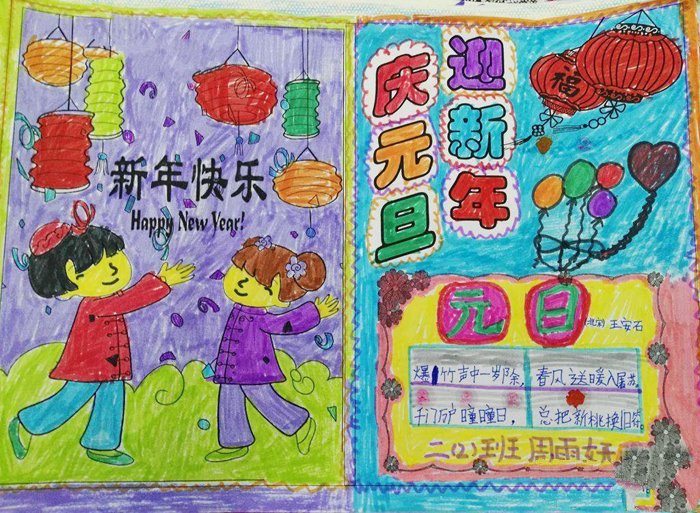 新年快乐
Happy New Year!
庆元旦
迎新年
福
元日
(北宋) 王安石
爆竹声中一岁除，春风送暖入屠苏。
千门万户瞳瞳日，总把新桃换旧符。
二(2)班 周雨